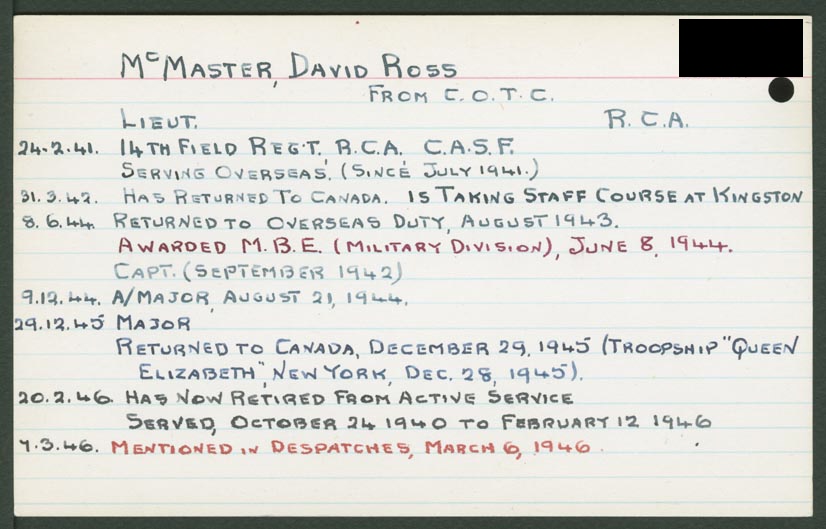 McMASTER, DAVID ROSS
FROM C.O.T.C.
LIEUT. R.C.A.
24.2.41. 14TH FIELD REG'T. R.C.A. C.A.S.F.
SERVING OVERSEAS. (SINCE JULY 1941.)
31.3.42. HAS RETURNED TO CANADA. IS TAKING STAFF COURSE AT KINGSTON
8.6.44. RETURNED TO OVERSEAS DUTY, AUGUST 1943.
AWARDED M.B.E. (MILITARY DIVISION), JUNE 8, 1944.
CAPT. (SEPTEMBER 1942)
9.12.44. A/MAJOR, AUGUST 21, 1944.
29.12.45 MAJOR
RETURNED TO CANADA, DECEMBER 29, 1945 (TROOPSHIP "QUEEN
ELIZABETH", NEW YORK, DEC. 28, 1945).
20.2.46. HAS NOW RETIRED FROM ACTIVE SERVICE
SERVED, OCTOBER 24 1940 TO FEBRUARY 12 1946
7.3.46. MENTIONED IN DESPATCHES, MARCH 6, 1946.